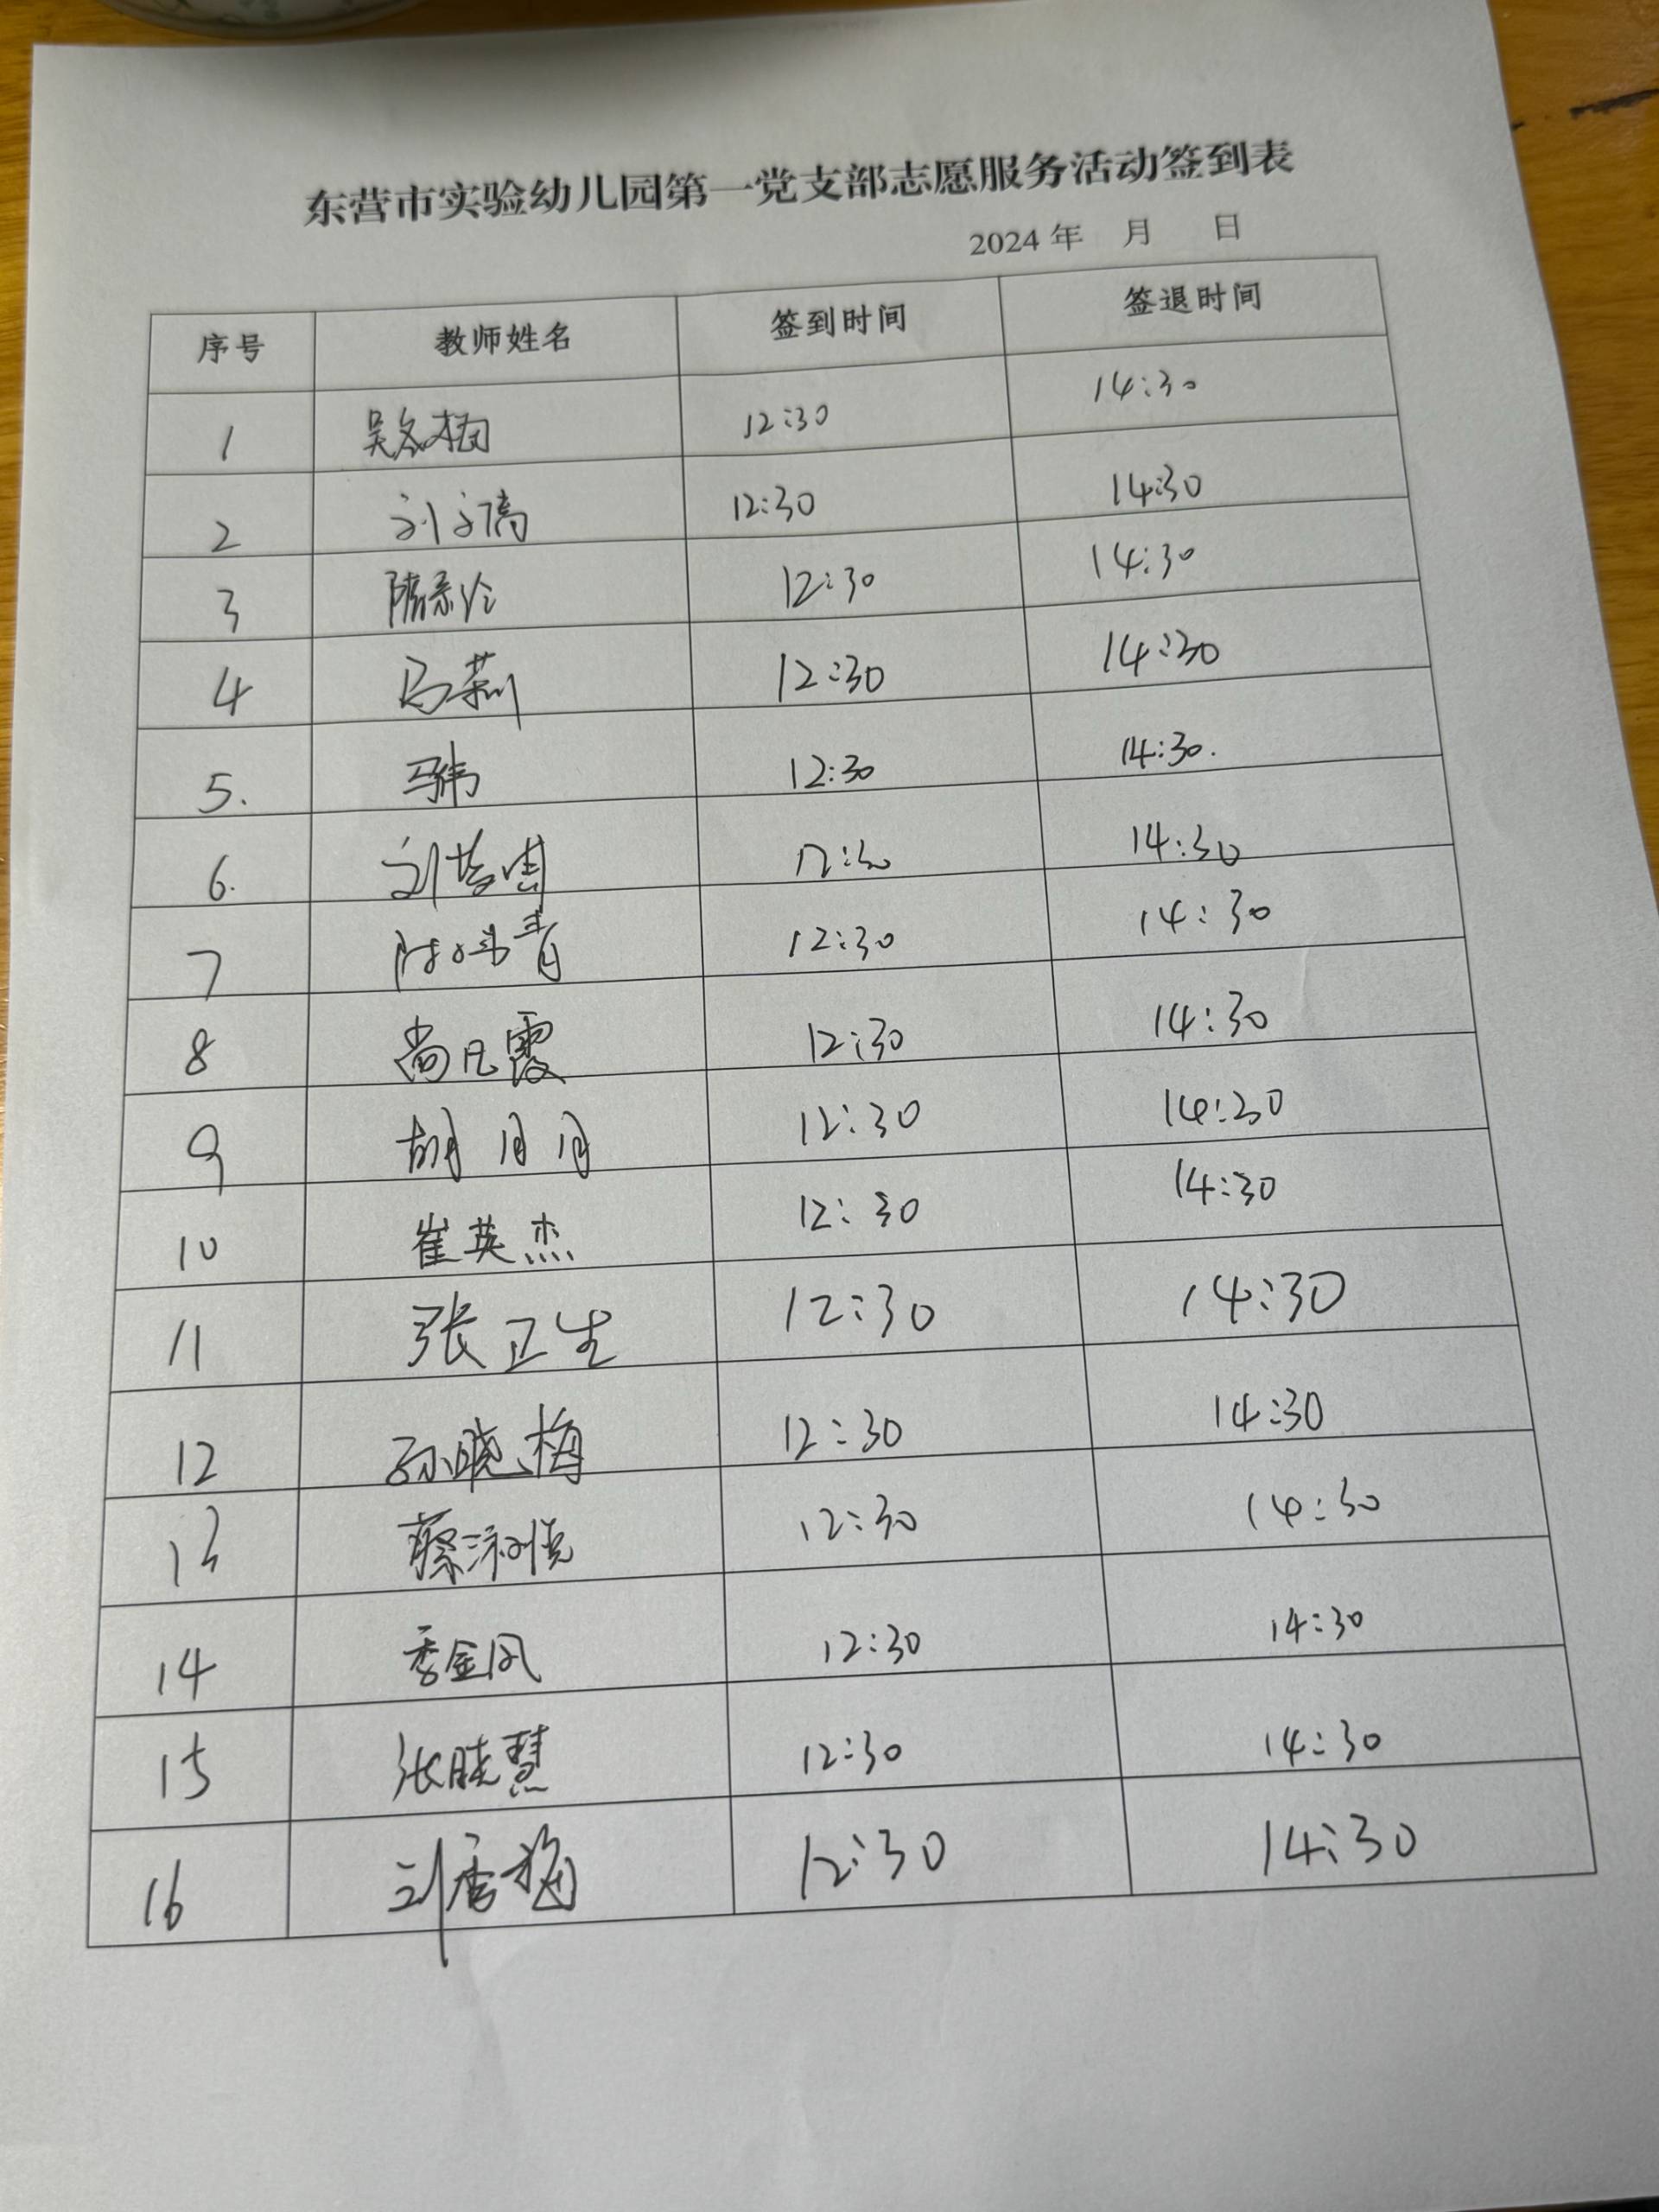 东营市实验幼儿园第一党支部志愿服务活动签到表
2024年 月 日
序号 教师姓名 签到时间 签退时间
1 吴冬梅 12:30 14:30
2 刘文倩 12:30 14:30
3 12:30 14:30
4 马莉 12:30 14:30
5. 马伟 12:30 14:30.
6. 12:30 14:30
7 12:30 14:30
8 尚凡霞 12:30 14:30
9 胡月月 12:30 14:30
10 崔英杰 12:30 14:30
11 张卫生 12:30 14:30
12 孙晓梅 12:30 14:30
13 12:30 14:30
14 季金凤 12:30 14:30
15 张晓慧 12:30 14:30
16 刘香梅 12:30 14:30